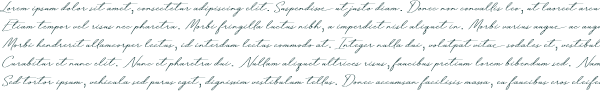 Lorem ipsum dolor sit amet, consectetur adipiscing elit. Suspendisse ut justo diam. Donec non convallis leo, ut laoreet arcu
Etiam tempor vel risus nec pharetra. Morbi fringilla luctus nibh, a imperdiet nisl aliquet in. Morbi varius augue ac augue
Morbi hendrerit ullamcorper lectus, id interdum lectus commodo at. Integer nulla dui, volutpat vitae sodales et, vestibul
Curabitur et nunc elit. Nunc et pharetra dui. Nullam aliquet ultrices risus, faucibus pretium lorem bibendum sed. Nam
Sed tortor ipsum, vehicula sed purus eget, dignissim vestibulum tellus. Donec accumsan facilisis massa, eu faucibus eros eleife